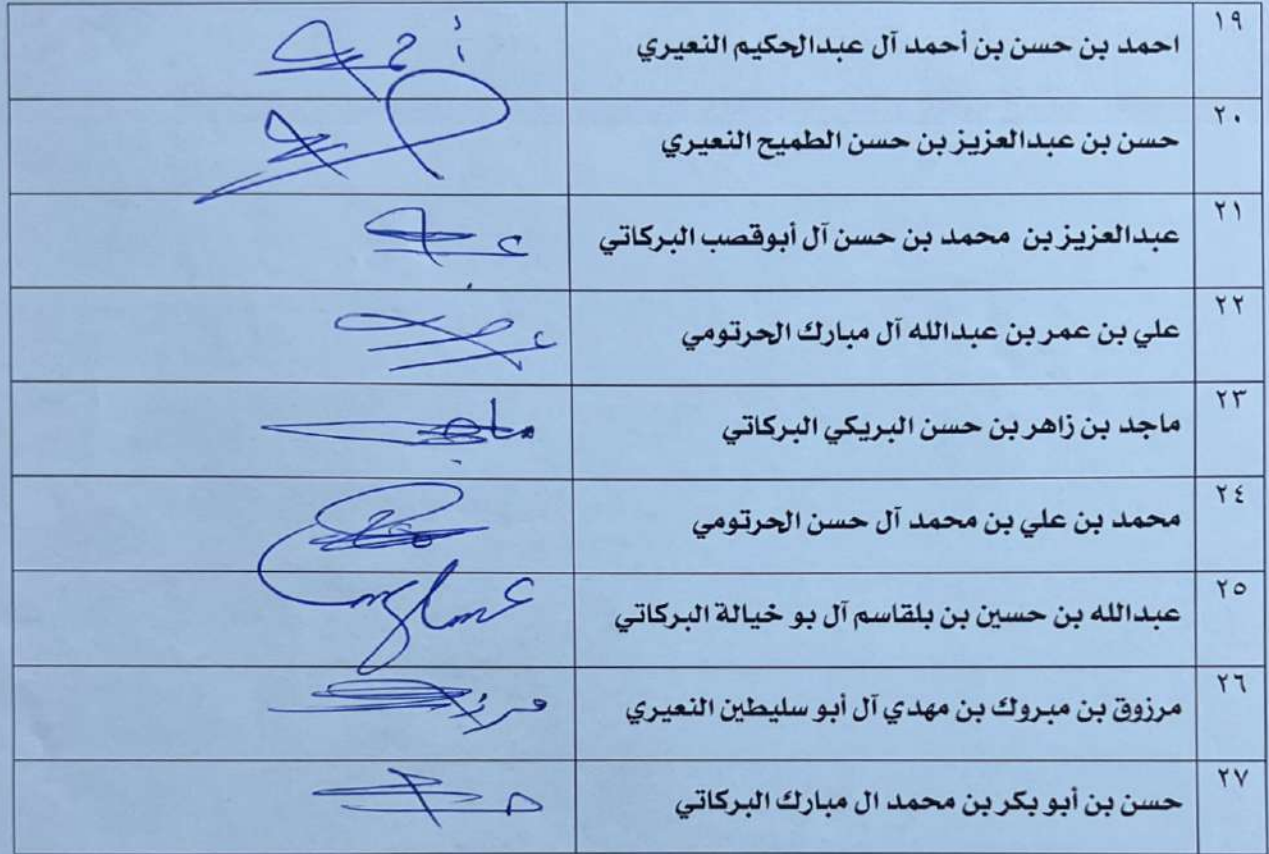 ١٩ احمد بن حسن بن أحمد آل عبدالحكيم النعيري
٢٠ حسن بن عبدالعزيز بن حسن الطميح النعيري
٢١ عبدالعزيز بن محمد بن حسن آل أبوقصب البركاتي
٢٢ علي بن عمر بن عبدالله آل مبارك الحرتومي
٢٣ ماجد بن زاهر بن حسن البريكي البركاتي
٢٤ محمد بن علي بن محمد آل حسن الحرتومي
٢٥ عبدالله بن حسين بن بلقاسم آل بو خيالة البركاتي
٢٦ مرزوق بن مبروك بن مهدي آل أبو سليطين النعيري
٢٧ حسن بن أبو بكر بن محمد ال مبارك البركاتي